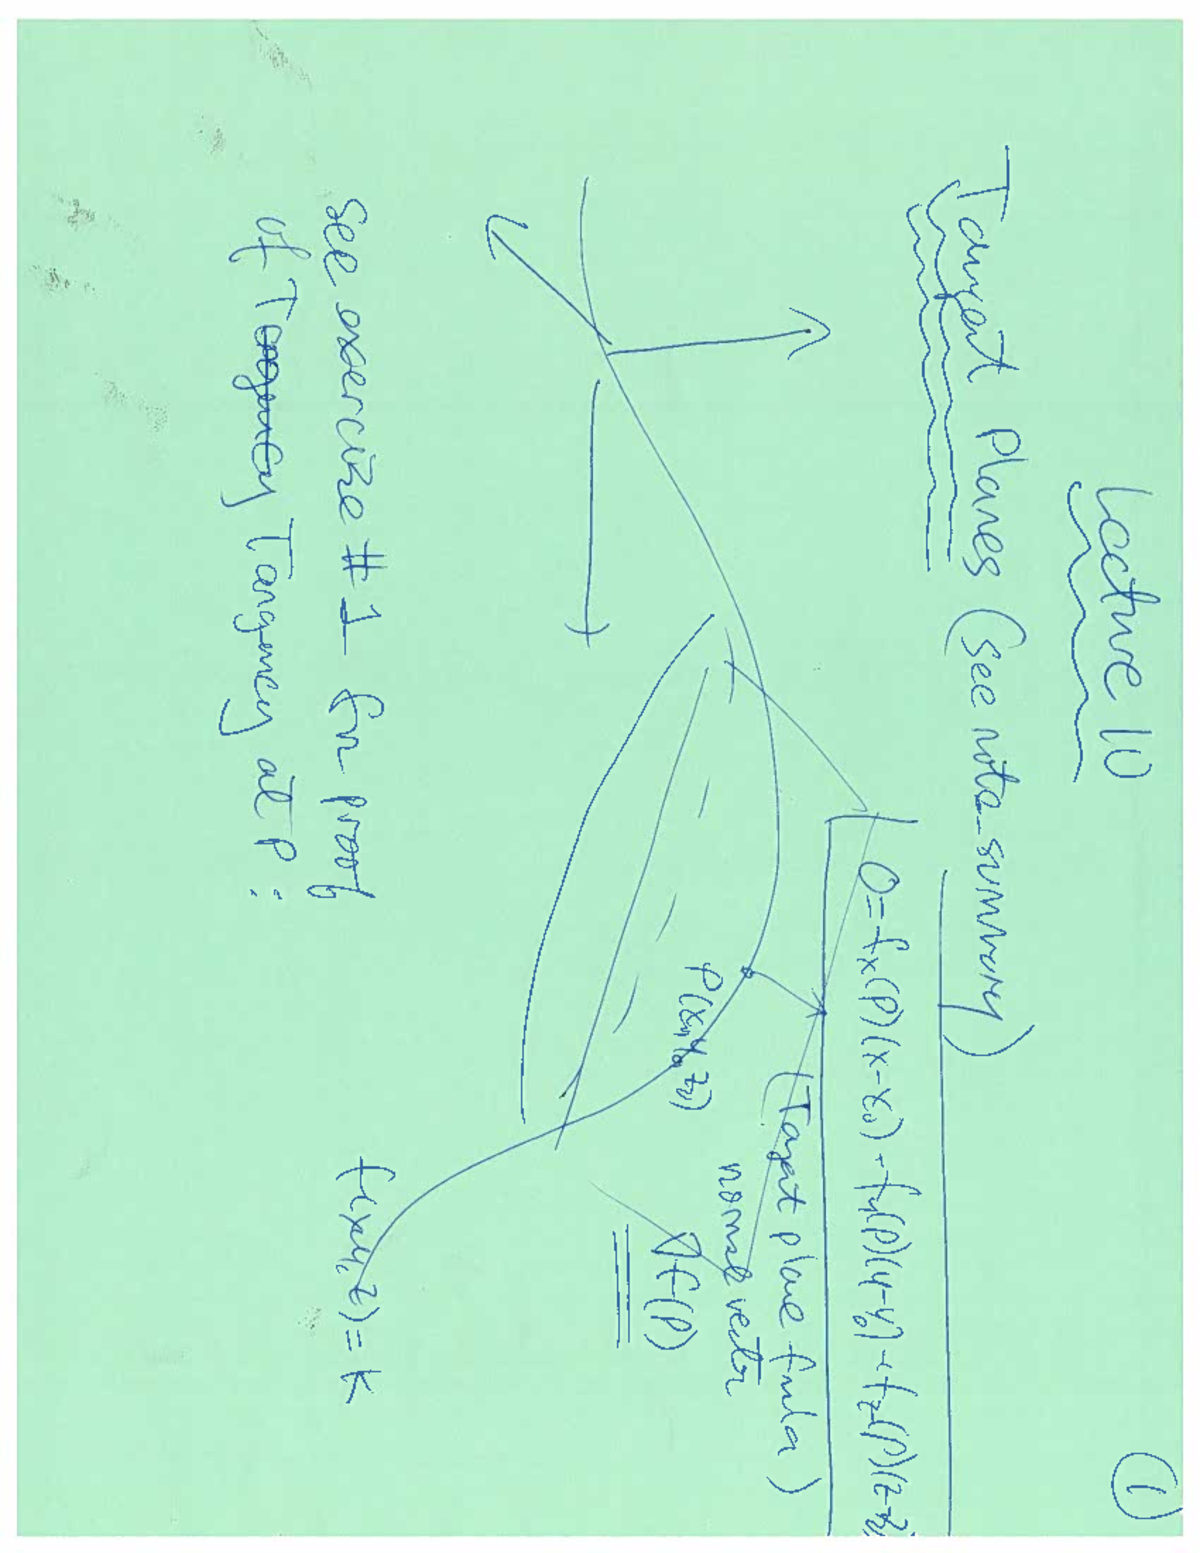 Lecture 10
①
Tangent Planes (see note-summary)
0=fx(P)(x-x0)+fy(P)(y-y0)+fz(P)(z-z0)
(Tangent plane fmla)
normal vector
∇f(P)
P(x0,y0,z0)
f(x,y,z)=k
see exercise #1 for proof
of Tangency at P: